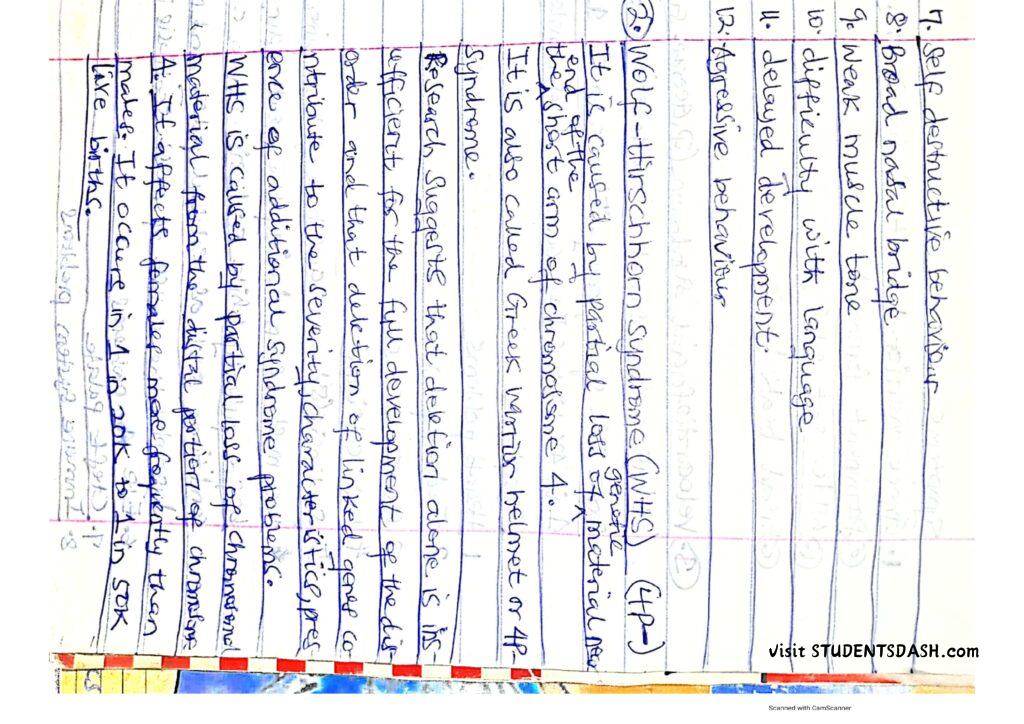 7. Self destructive behaviour
8. Broad nasal bridge
9. Weak muscle tone
10. difficulty with language
11. delayed development.
12. Agressive behaviour
2. Wolf-Hirschhorn Syndrome (WHS) (4P-)
It is caused by partial loss of genetic material near
the end of the short arm of chromosome 4.
It is also called Greek warrior helmet or 4P-
Syndrome.
Research Suggests that deletion alone is ins-
ufficient for the full development of the dis-
order and that deletion of linked genes co-
ntribute to the severity, characteristics, pres
ence of additional syndrome problems.
WHS is caused by partial loss of chromosomal
material from the distal portion of chromosome
4. It affects females more frequently than
males. It occurs in 1 in 20K to 1 in 50K
live births.
visit STUDENTSDASH.com
Scanned with CamScanner